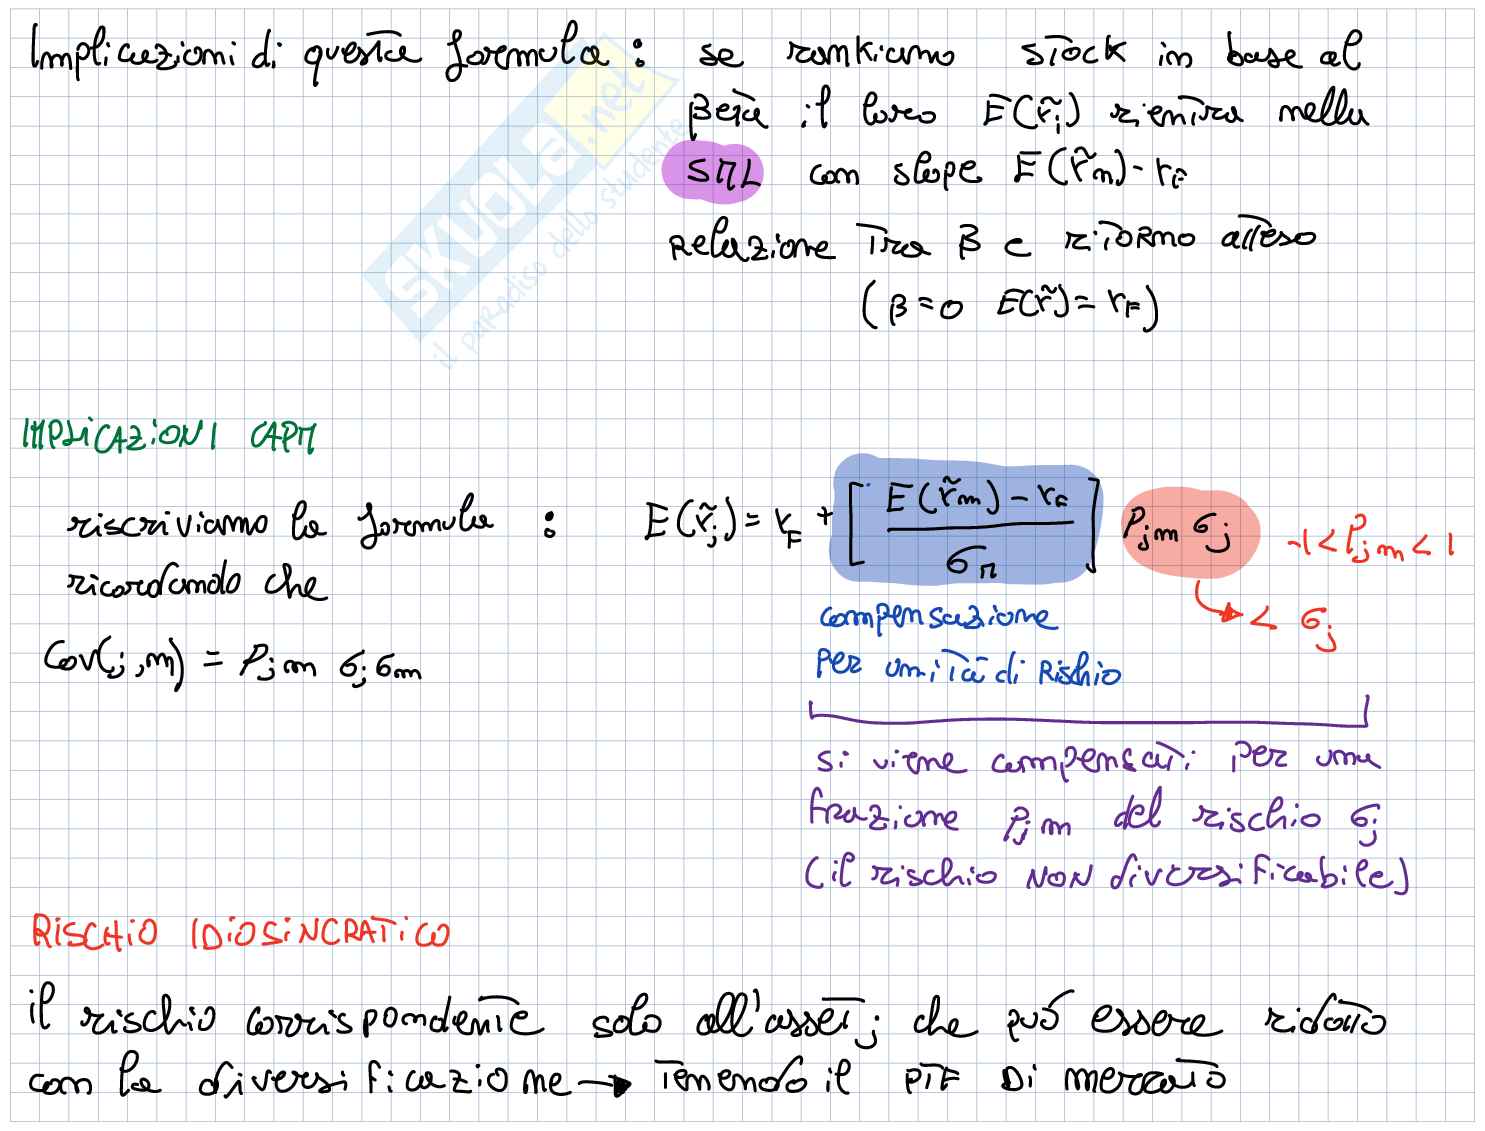 Implicazioni di questa formula: se rankiamo stock in base al
Beta il loro E(r̃j) rientra nella
SML con slope E(r̃m)-rF
Relazione tra β e ritorno atteso
(β=0 E(r̃)=rF)
SKUOLA.net
il paradiso dello studente
IMPLICAZIONI CAPM
riscriviamo la formula : E(r̃j)= rF + [ (E(r̃m) - rF) / σM ] ρjm σj -1<ρjm<1
ricordando che
compensazione
< σj
Cov(j,m) = ρjm σjσm
per unità di rischio
si viene compensati per una
frazione ρjm del rischio σj
(il rischio NON diversificabile)
RISCHIO IDIOSINCRATICO
il rischio corrispondente solo all'asset j che può essere ridotto
con la diversificazione → Tenendo il PTF Di mercato